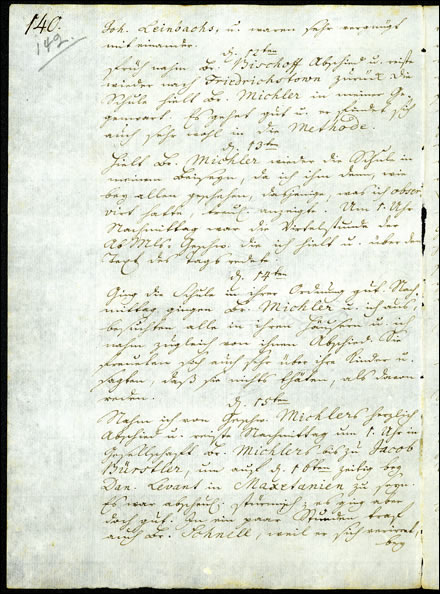 140.
142.
Joh. Leinbachs, u. waren sehr vergnügt
mit einander.
d. 12ten
früh nahm Br. Bischoff Abschied u. reiste
wieder nach Friedrichstown zurück. Die
Schule hielt Br. Michler in meiner Ge-
genwart. Es gehet gut u. er findet sich
auch sehr wohl in die Methode.
d. 13ten
Hielt Br. Michler wieder die Schule in
meinem Beyseyn, da ich ihm denn, wie
bey allen geschehen, dasjenige, was ich obser-
virt hatte, treul. anzeigte. Um 1 Uhr
Nachmittag war die Viertelstunde der
AbMls. Geschw. die ich hielt u. über den
Text des Tags redete.
d. 14ten
Ging die Schule in ihrer Ordnung gut. Nach-
mittag gingen Br. Michler u. ich aus,
besuchten alle in ihren Häusern u. ich
nahm zugleich von ihnen Abschied. Sie
freueten sich auch sehr über ihre Kinder u.
sagten, daß sie nichts thäten, als davon
reden.
d. 15ten
Nahm ich von Geschw. Michlers herzlich
Abschied u. reiste Nachmittag um 1 Uhr in
Gesellschaft Br. Michlers bis zu Jacob
Bürstler, um auf d. 16ten zeitig bey
Dan. Levant in Maxetanien zu seyn.
Es war abscheul. stürmisch; es ging aber
doch gut. In ein paar Stunden traf
auch Br. Schnell, weil er sich verirret,
bey